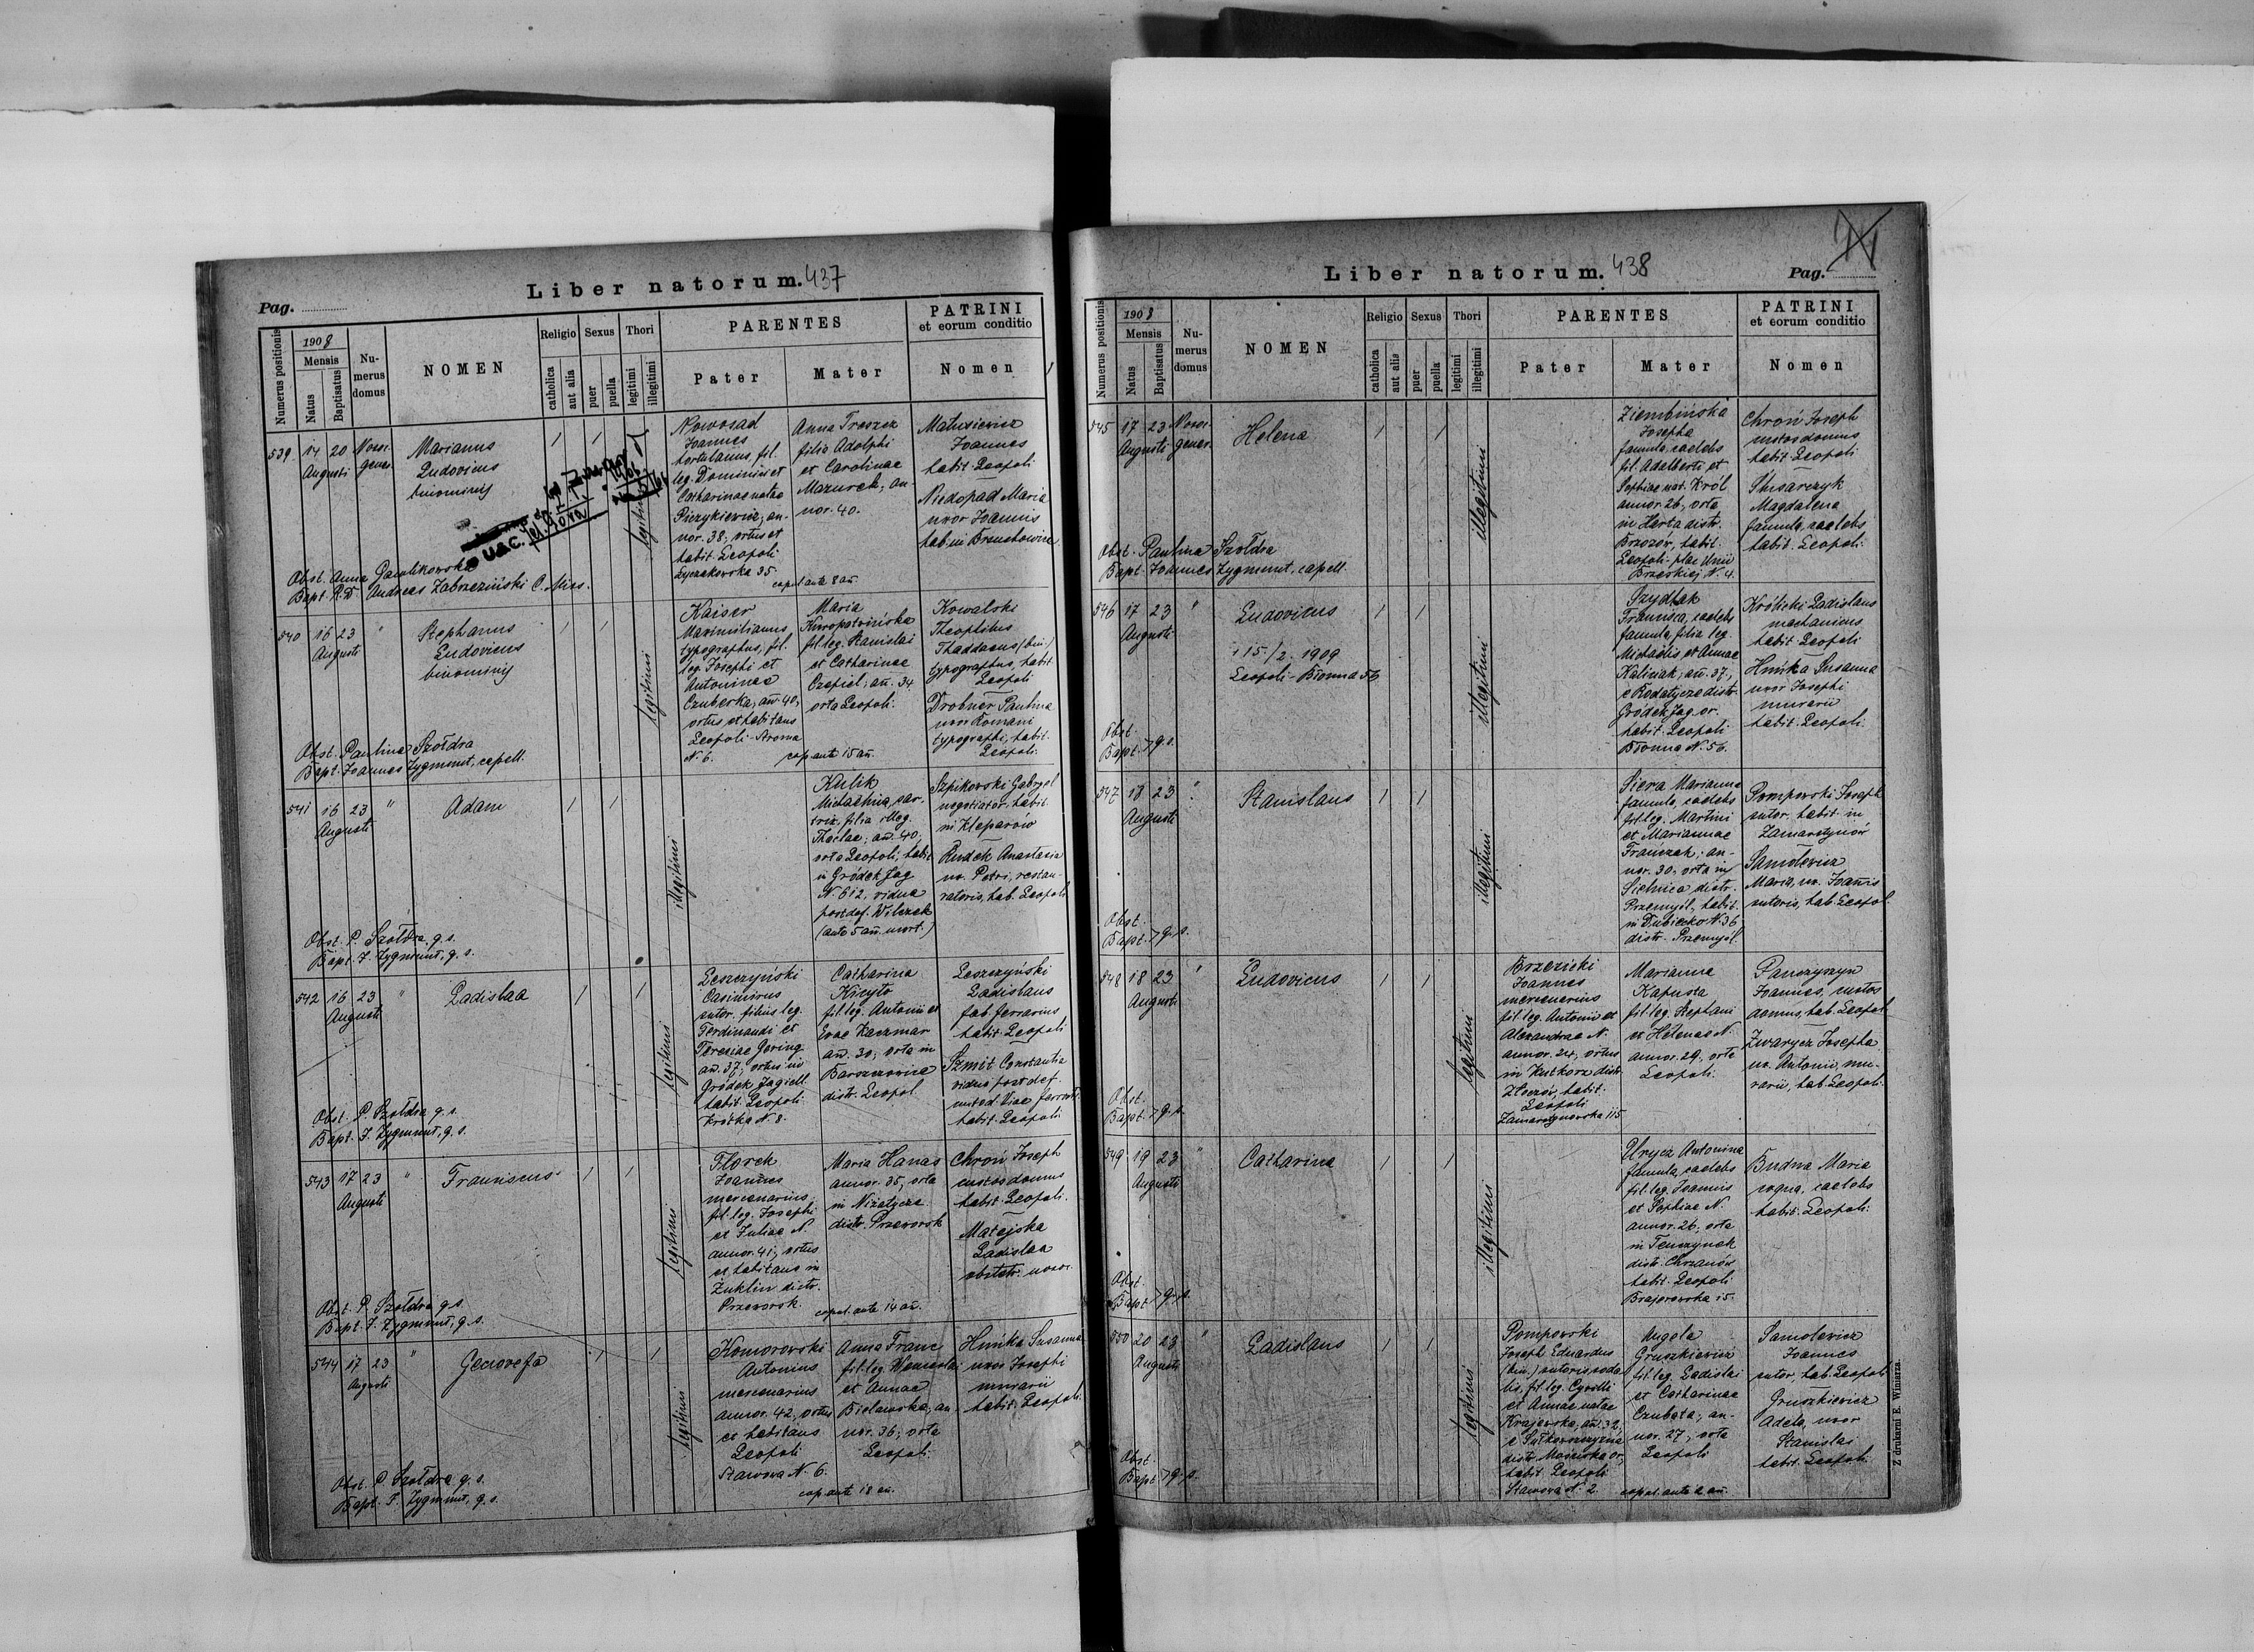 Liber natorum. 437
Pag.
Numerus positionis
1908
Mensis
Natus
Baptisatus
Nu-
merus
domus
NOMEN
Religio
catholica
aut alia
Sexus
puer
puella
Thori
legitimi
illegitimi
PARENTES
Pater
Mater
PATRINI
et eorum conditio
Nomen
539
14 20
Augusti
Nosor.
gener.
Marianus
Ludovicus
binominis
legitimi
Nowosad
Joannes
hortulanus, fil.
leg. Dominici et
Catharinae natae
an-
nor. 38, ortus et
habit. Leopoli
Łyczakowska 35.
Anna Troszcz
filia Adolphi
et Carolinae
Mazurek, an-
nor. 40.
copul. ante 8 an.
Matusiewicz
Joannes
habit. Leopoli
Niedopad Maria
uxor Joannis
hab. in Brzuchowice
Obst. Anna Gawlikowska
Bapt. R. D. Andreas Zabrzeziński C. Miss.
540
16 23
Augusti
"
Stephanus
Ludovicus
binominis
legitimi
Kaiser
Maximilianus
typographus, fil.
leg. Josephi et
Antoninae
Czuberka, an. 40,
ortus et habitans
Leopoli
N. 6.
Maria
Kuropatwińska
fil. leg. Stanislai
et Catharinae
Czapiel, an. 34
orta Leopoli.
cop. ante 15 an.
Kowalski
Theophilus
Thaddaeus (bin.)
typographus, habit.
Leopoli
Drobner Paulina
uxor Romani
typographi, habit.
Leopoli
Obst. Paulina Szołdra
Bapt. Joannes Zygmunt, capell.
541
16 23
Augusti
"
Adam
illegitimi
Kulik
Michalina, sar-
trix, filia illeg.
Theclae, an. 40,
orta Leopoli, habit.
in Gródek Jag.
N. 612, vidua
post def. Wilczek
(ante 5 an. mort.)
Szpikowski Gabryel
negotiator, habit.
in Kleparów
Rudek Anastasia
ux. Petri, restau-
ratoris, hab. Leopoli
Obst. P. Szołdra, q. s.
Bapt. J. Zygmunt, q. s.
542
16 23
Augusti
"
Ladislaa
legitimi
Leszczyński
Casimirus
sutor, filius leg.
Ferdinandi et
Teresiae Goring
an. 37, ortus in
Gródek Jagiell.
habit. Leopoli
Krótka N. 8.
Catharina
Kicyło
fil. leg. Antonii et
Evae Kaczmar
an. 30, orta in
Barszczowice
distr. Leopol.
Leszczyński
Ladislaus
fab. ferrarius
habit. Leopoli
Szmit Constantia
vidua post def.
habit. Leopoli
Obst. P. Szołdra q. s.
Bapt. J. Zygmunt, q. s.
543
17 23
Augusti
"
Franciscus
legitimi
Florek
Joannes
mercenarius
fil. leg. Josephi
et Juliae N.
annor. 41, ortus
et habitans in
Żuklin distr.
Przeworsk.
Maria Hanas
annor. 35, orta
in Niżatycze
distr. Przeworsk
copul. ante 14 an.
Chroń Joseph
custos domus
habit. Leopoli.
Matejska
Ladislaa
obstetr. nosor.
Obst. P. Szołdra q. s.
Bapt. J. Zygmunt, q. s.
544
17 23
Augusti
"
Genovefa
legitimi
Komorowski
Antonius
mercenarius
annor. 42, ortus
et habitans
Leopoli
Stawowa N. 6.
Anna Franc
fil. leg. Wenceslai
et Annae
Bielawska, an-
nor. 36, orta
Leopoli.
cop. ante 18 an.
Hnińka Susanna
uxor Josephi
murarii
habit. Leopoli
Obst. P. Szołdra q. s.
Bapt. J. Zygmunt, q. s.
Liber natorum. 438
Pag.
Numerus positionis
1908
Mensis
Natus
Baptisatus
Nu-
merus
domus
NOMEN
Religio
catholica
aut alia
Sexus
puer
puella
Thori
legitimi
illegitimi
PARENTES
Pater
Mater
PATRINI
et eorum conditio
Nomen
545
17 23
Augusti
Nosor.
gener.
Helena
illegitimi
Ziembińska
Josepha
famula, caelebs
fil. Adalberti et
Sophiae nat. Król
annor. 26, orta
in Harta distr.
Brzozów, habit.
Leopoli plac Unii
Brzeskiej N. 4.
Chroń Joseph
custos domus
habit. Leopoli
Ślusarczyk
Magdalena
famula, caelebs
habit. Leopoli.
Obst. Paulina Szołdra
Bapt. Joannes Zygmunt, capell.
546
17 23
Augusti
"
Ludovicus
+ 15./2. 1909
Leopoli - Błonna 56
illegitimi
Szydłak
Francisca, caelebs
famula, filia leg.
Michaelis et Annae
Kalinak, an. 37,
e Rodatycze distr.
Gródek Jag. or.
habit. Leopoli
Błonna N. 56.
Królicki Ladislaus
mechanicus
habit. Leopoli
Hnińka Susanna
uxor Josephi
murarii
habit. Leopoli.
Obst.
Bapt. > q. s.
547
18 23
Augusti
"
Stanislaus
illegitimi
Siera Marianna
famula, caelebs
fil. leg. Martini
et Mariannae
Frańczak, an-
nor. 30, orta in
Sielnica distr.
Przemyśl, habit.
in Dubiecko N. 36
distr. Przemyśl.
Pompowski Joseph
sutor, habit. in
Zamarstynów
Samolewicz
Maria, ux. Joannis
sutoris, hab. Leopol.
Obst.
Bapt. > q. s.
548
18 23
Augusti
"
Ludovicus
legitimi
Brzezicki
Joannes
mercenarius
fil. leg. Antonii et
Alexandrae N.
annor. 24, ortus
in Kutkorz distr.
Złoczów, habit.
Leopoli
Zamarstynowska 115
Marianna
Kapusta
fil. leg. Stephani
et Helenae N.
annor. 29, orta
Leopoli.
Panczyszyn
Joannes, custos
domus, hab. Leopol.
Zwarycz Josepha
ux. Antonii, mu-
rarii, hab. Leopoli.
Obst.
Bapt. > q. s.
549
19 23
Augusti
"
Catharina
illegitimi
Urycz Antonina
famula, caelebs
fil. leg. Joannis
et Sophiae N.
annor. 26, orta
in Tenczynek
distr. Chrzanów
habit. Leopoli
Brajerowska 15.
Budna Maria
coqua, caelebs
habit. Leopoli.
Obst.
Bapt. > q. s.
550
20 23
Augusti
"
Ladislaus
legitimi
Pompowski
Joseph Eduardus
(bin.) sutoris soda-
lis, fil. leg. Cyrilli
et Annae natae
Krajewska, an. 32,
distr. Mościska or.
habit. Leopoli
Stawowa N. 2.
Angela
Gruszkiewicz
fil. leg. Ladislai
et Catharinae
Czubata, an-
nor. 27, orta
Leopoli
copul. ante 2 an.
Samolewicz
Joannes
sutor, hab. Leopoli
Gruszkiewicz
Adela, uxor
Stanislai
habit. Leopoli
Obst.
Bapt. > q. s.
Z drukarni E. Winiarza.